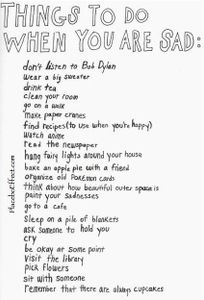 THINGS TO DO
WHEN YOU ARE SAD:
don't listen to Bob Dylan
wear a big sweater
drink tea
clean your room
go on a walk
make paper cranes
find recipes (to use when you're happy)
watch anime
read the newspaper
hang fairy lights around your house
bake an apple pie with a friend
organize old Pokémon cards
think about how beautiful outer space is
paint your sadnesses
go to a cafe
sleep on a pile of blankets
ask someone to hold you
cry
be okay at some point
visit the library
pick flowers
sit with someone
remember that there are always cupcakes
PlaceboEffect.com